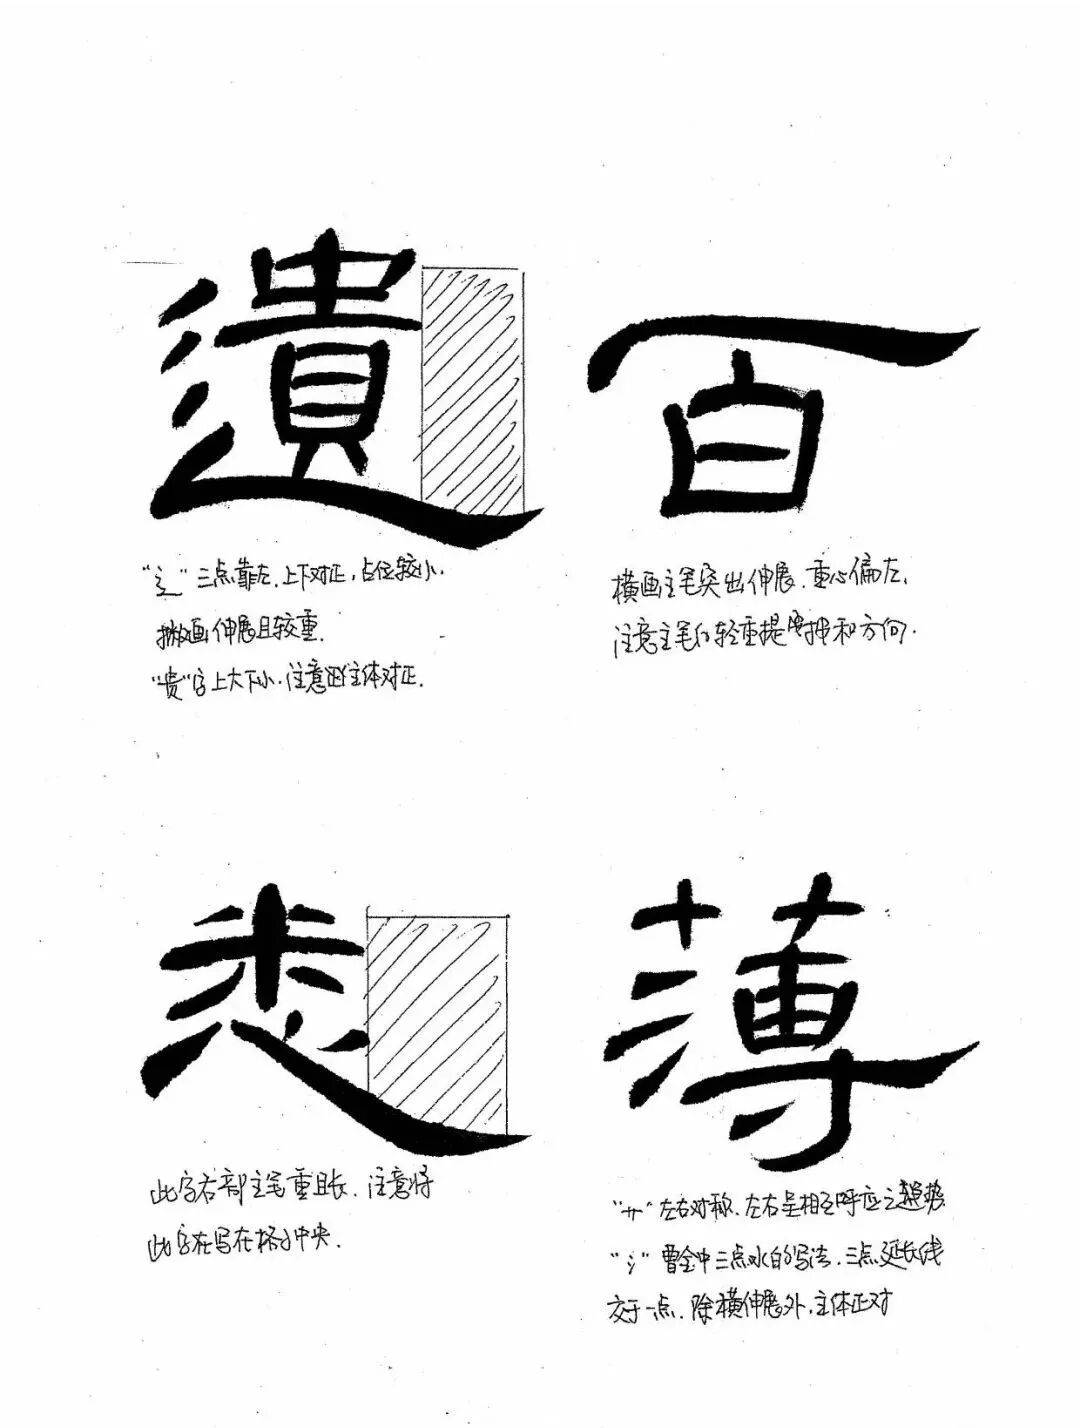 遺
百
"辶"三点靠左,上下对正,占位较小.
捺画伸展且较重.
"贵"字上大下小.注意因主体对正.
横画主笔突出伸展.重心偏左,
注意主笔的轻重提按和方向.
悉
薄
此字右部主笔重且长.注意将
此字在写在格子中央.
"艹"左右对称.左右呈相互呼应之趋势
"氵"曹全中三点水的写法.三点延长线
交于一点.除横伸展外,主体正对